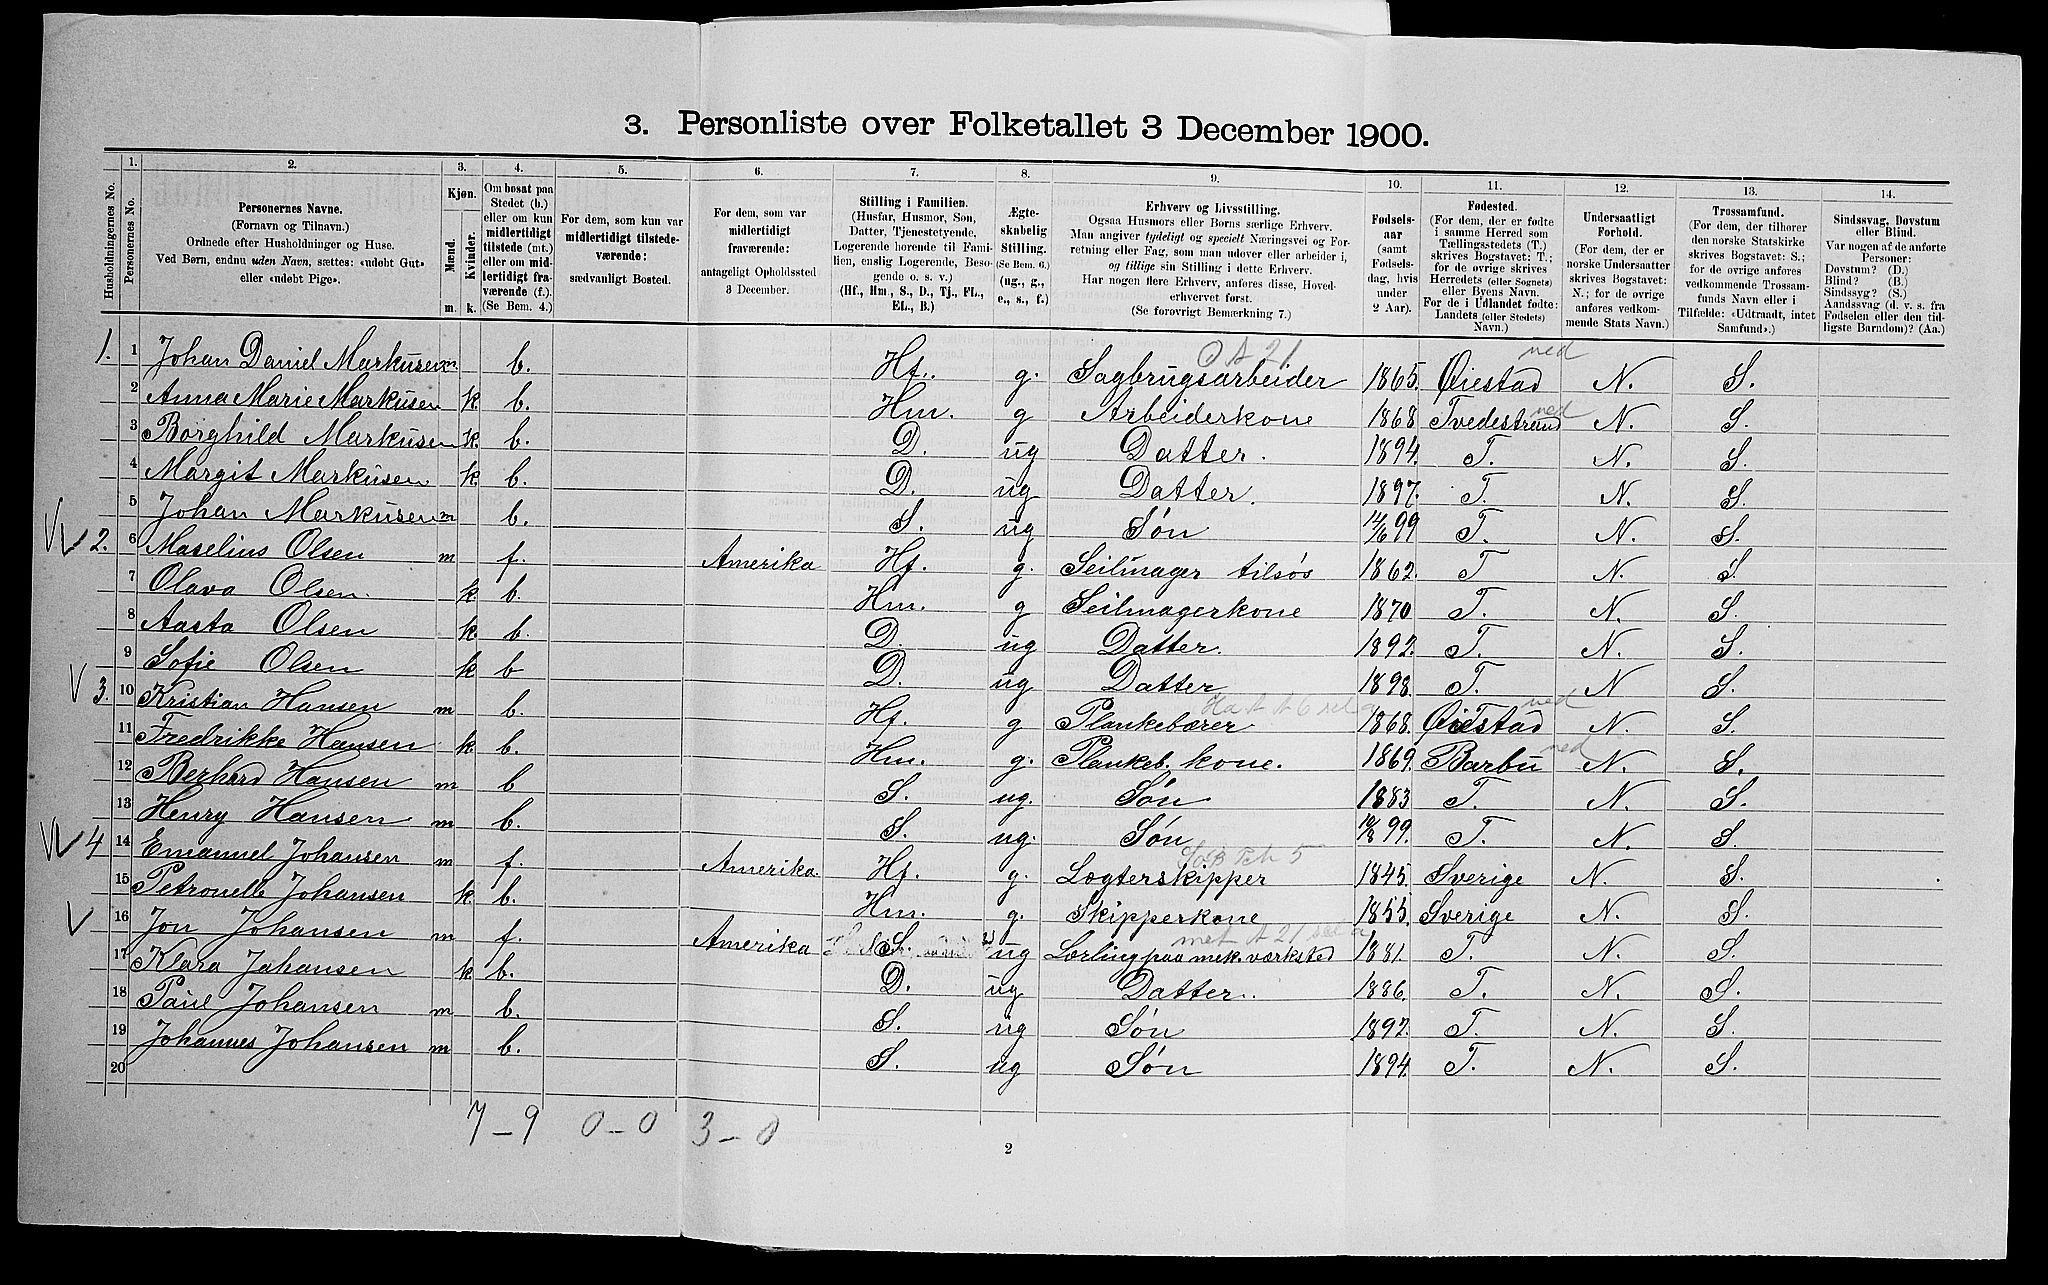 3. Personliste over Folketallet 3 December 1900.
Husholdningernes No.
1. Personernes No.
2. Personernes Navne. (Fornavn og Tilnavn.) Ordnede efter Husholdninger og Huse. Ved Børn, endnu uden Navn, sættes: «udøbt Gut» eller «udøbt Pige».
3. Kjøn. Mænd. m. Kvinder. k.
4. Om bosat paa Stedet (b.) eller om kun midlertidigt tilstede (mt.) eller om midlertidigt fraværende (f.). (Se Bem. 4.)
5. For dem, som kun var midlertidigt tilstedeværende: sædvanligt Bosted.
6. For dem, som var midlertidigt fraværende: antageligt Opholdssted 3 December.
7. Stilling i Familien. (Husfar, Husmor, Søn, Datter, Tjenestetyende, Logerende hørende til Familien, enslig Logerende, Besøgende o. s. v.) (Hf., Hm., S., D., Tj., FL., EL., B.)
8. Ægteskabelig Stilling. (Se Bem. 6.) (ug., g., e., s., f.)
9. Erhverv og Livsstilling. Ogsaa Husmors eller Børns særlige Erhverv. Man angiver tydeligt og specielt Næringsvei og Forretning eller Fag, som man udøver eller arbeider i, og tillige sin Stilling i dette Erhverv. Har nogen flere Erhverv, anføres disse, Hovederhvervet først. (Se forøvrigt Bemærkning 7.)
10. Fødselsaar (samt Fødselsdag, hvis under 2 Aar).
11. Fødested. (For dem, der er fødte i samme Herred som Tællingsstedets (T.) skrives Bogstavet: T.; for de øvrige skrives Herredets (eller Sognets) eller Byens Navn. For de i Udlandet fødte: Landets (eller Stedets) Navn.)
12. Undersaatligt Forhold. (For dem, der er norske Undersaatter skrives Bogstavet: N.; for de øvrige anføres vedkommende Stats Navn.)
13. Trossamfund. (For dem, der tilhører den norske Statskirke skrives Bogstavet: S.; for de øvrige anføres vedkommende Trossamfunds Navn eller i Tilfælde: «Udtraadt, intet Samfund».)
14. Sindssvag, Døvstum eller Blind. Var nogen af de anførte Personer: Døvstum? (D.) Blind? (B.) Sindssyg? (S.) Aandssvag (d. v. s. fra Fødselen eller den tidligste Barndom)? (Aa.)
1. 1 Johan Daniel Markusen m. b. Hf. g. Sagbrugsarbeider 1865. Øiestad ned N. S.
2 Anna Marie Markusen k. b. Hm. g Arbeiderkone 1868 Tvedestrand ned N. S.
3 Borghild Markusen k. b. D. ug Datter. 1894. T. N. S.
4 Margit Markusen k. b. D. ug Datter. 1897. T. N. S.
5 Johan Markusen m b. S. ug Søn 14/6 99 T. N. S.
2. 6 Maselius Olsen m f. Amerika Hf. g. Seilmager tilsøs 1862. T N. S.
7 Olava Olsen. k b. Hm. g Seilmagerkone 1870 T. N. S.
8 Aasta Olsen k b. D. ug Datter. 1892. T. N. S.
9 Sofie Olsen k b D. ug Datter 1898. T. N S.
3. 10 Kristian Hansen m b. Hf. g Plankebærer 1868. Øiestad ned N. S.
11 Fredrikke Hansen k. b. Hm. g. Plankeb. kone. 1869. Barbu ned N. S.
12 Berhard Hansen m b S. ug. Søn. 1883 T. N. S.
13 Henry Hansen m b. S. ug. Søn 10/8 99. T. N. S.
4 14 Emanuel Johansen m f. Amerika. Hf. g. Lægterskipper 1845. Sverige N. S.
15 Petronelle Johansen k b. Hm. g. Skipperkone 1855. Sverige N. S.
16 Jon Johansen m f. Amerika S. ug Lærling paa mek. værksted 1881. T. N. S.
17 Klara Johansen k b. D. ug Datter. 1886. T. N. S.
18 Paul Johansen m b. S. ug Søn 1892. T. N. S.
19 Johannes Johansen m b. S. ug Søn 1894. T. N. S.
20
7-9 0-0 3-0
2